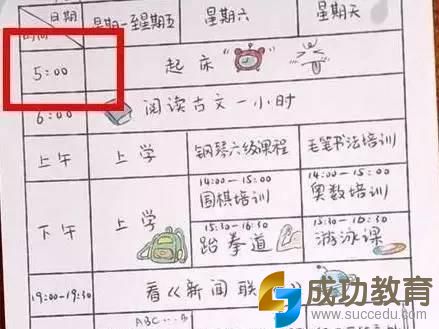 日期 星期一至星期五 星期六 星期天
时间
5:00 起床
6:00 阅读古文一小时
上午 上学 钢琴六级课程 毛笔书法培训
14:00-15:00 14:00-15:00
围棋培训 奥数培训
下午 上学 15:30-16:30 15:30-16:30
跆拳道 游泳课
19:00-19:30 看《新闻联
ABC...
成功教育
www.succedu.com